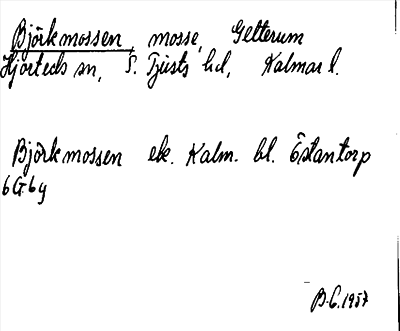 Björkmossen, mosse, Getterum
Hjorteds sn, S. Tjusts hd, Kalmar l.
Björkmossen ek. Kalm. bl. Östantorp
6G6g
B.C. 1957